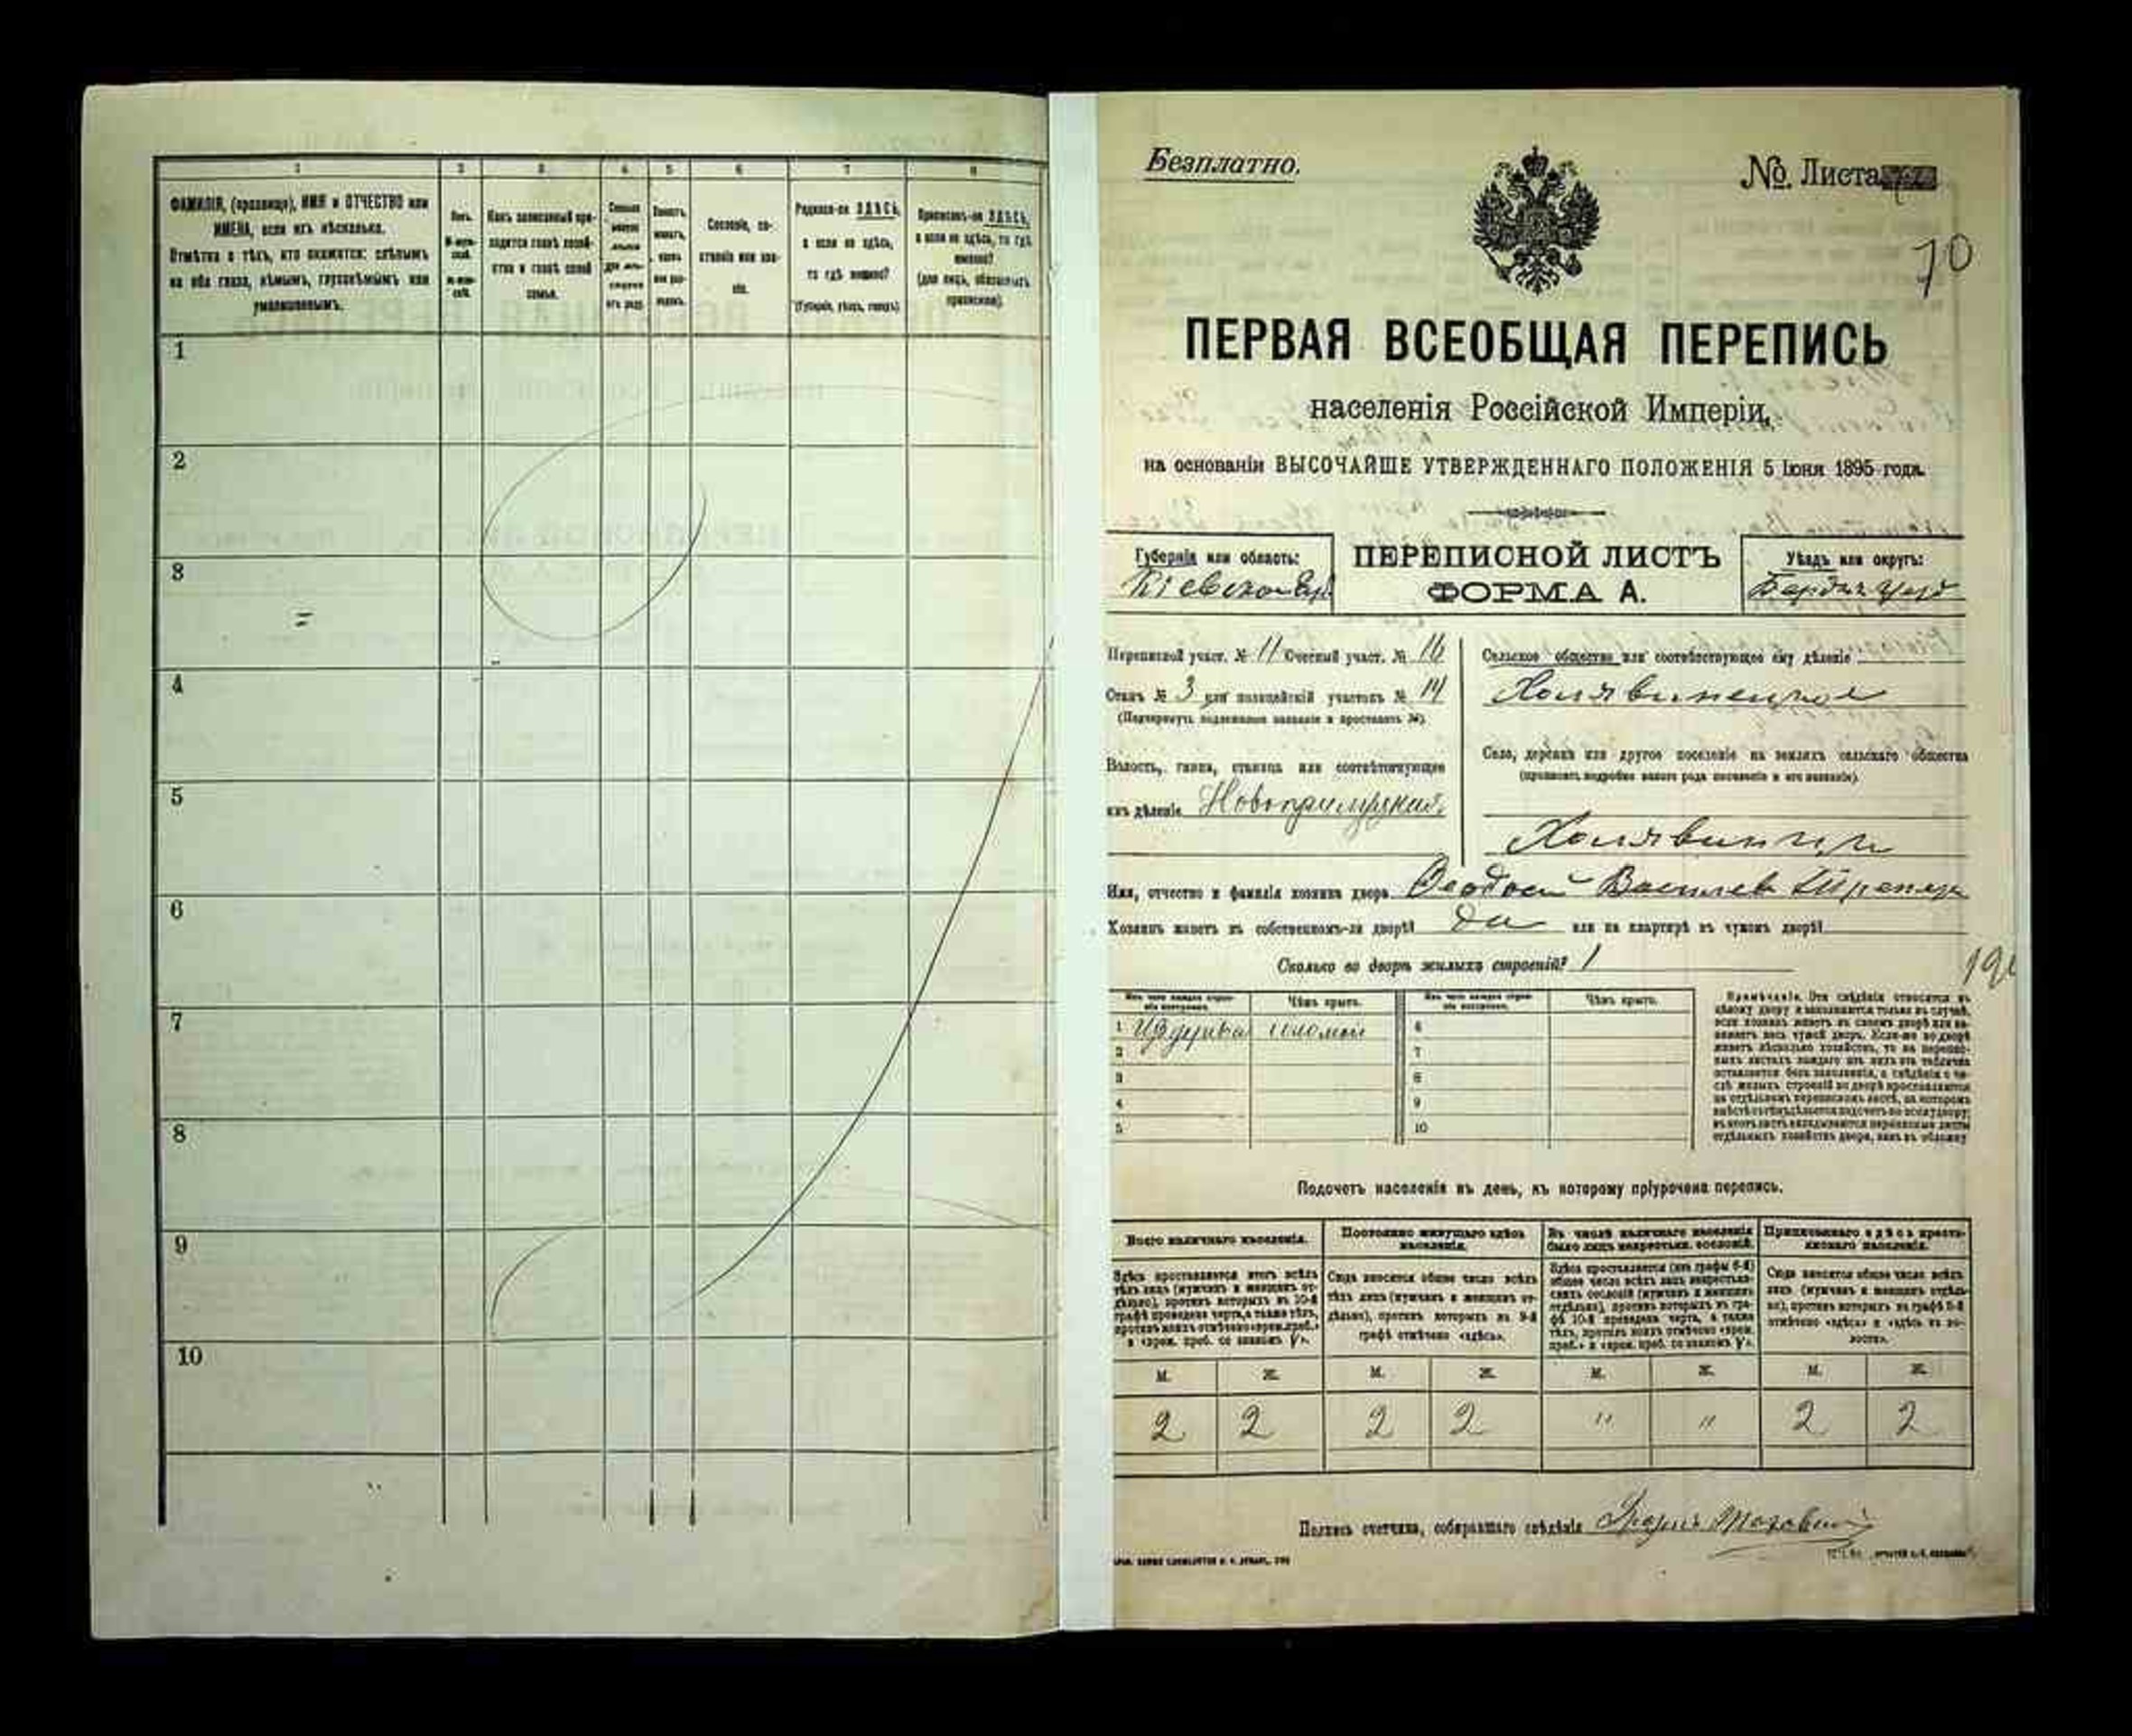 1
2
3
4
5
6
7
8
ФАМИЛІЯ, (прозвище), ИМЯ и ОТЧЕСТВО или
ИМЕНА, если ихъ нѣсколько.
Отмѣтка о тѣхъ, кто окажется: слѣпымъ
на оба глаза, нѣмымъ, глухонѣмымъ или
умалишеннымъ.
Какъ записанный при-
ходится главѣ хозяй-
ства и главѣ своей
семьи.
Сословіе, со-
стояніе или зва-
ніе.
Родился-ли ЗДѢСЬ,
а если не здѣсь,
то гдѣ именно?
(Губернія, уѣздъ, городъ)
Приписанъ-ли ЗДѢСЬ,
а если не здѣсь, то гдѣ
именно?
(для лицъ, обязанныхъ
припискою).
1
2
3
4
5
6
7
8
9
10
Безплатно.
№ Листа
70
ПЕРВАЯ ВСЕОБЩАЯ ПЕРЕПИСЬ
населенія Россійской Имперіи,
на основаніи ВЫСОЧАЙШЕ УТВЕРЖДЕННАГО ПОЛОЖЕНІЯ 5 Іюня 1895 года.
Губернія или область:
ПЕРЕПИСНОЙ ЛИСТЪ
ФОРМА А.
Уѣздъ или округъ:
Переписной участ. № 11 Счетный участ. № 16
Станъ № 3 или полицейскій участокъ № 14
(Подчеркнуть надлежащее названіе и проставить №).
Волость, гмина, станица или соотвѣтствующее
имъ дѣленіе
Сельское общество или соотвѣтствующее ему дѣленіе
Село, деревня или другое поселеніе на земляхъ сельскаго общества
(прописать подробно какого рода поселеніе и его названіе).
Имя, отчество и фамилія хозяина двора Феодосій Васильевъ
Хозяинъ живетъ въ собственномъ-ли дворѣ? Да или на квартирѣ въ чужомъ дворѣ?
Сколько во дворѣ жилыхъ строеній? 1
Чѣмъ крыто.
Чѣмъ крыто.
1 Изъ дерева соломой
2
3
4
5
6
7
8
9
10
Примѣчаніе. Эти свѣдѣнія относятся къ
цѣлому двору и заполняются только въ случаѣ,
если хозяинъ живетъ въ своемъ дворѣ или за-
нимаетъ весь чужой дворъ. Если-же во дворѣ
живетъ нѣсколько хозяйствъ, то на перепис-
ныхъ листахъ каждаго изъ нихъ эта табличка
оставляется безъ заполненія, а свѣдѣнія о чи-
слѣ жилыхъ строеній во дворѣ проставляются
на отдѣльномъ переписномъ листѣ, на которомъ
вмѣстѣ съ тѣмъ дѣлается подсчетъ по всему двору;
въ этотъ листъ вкладываются переписные листы
отдѣльныхъ хозяйствъ двора, какъ въ обложку
Подсчетъ населенія въ день, къ которому пріурочена перепись.
Всего наличнаго населенія.
Постоянно живущаго здѣсь
населенія.
Въ числѣ наличнаго населенія
было лицъ некрестьян. сословій.
Приписаннаго здѣсь кресть-
янскаго населенія.
Здѣсь проставляется итогъ всѣхъ
тѣхъ лицъ (мужчинъ и женщинъ от-
дѣльно), противъ которыхъ въ 10-й
графѣ проведена черта, а также тѣхъ,
противъ коихъ отмѣчено «врем. преб.»
и «врем. преб. со знакомъ V».
Сюда вносится общее число всѣхъ
тѣхъ лицъ (мужчинъ и женщинъ от-
дѣльно), противъ которыхъ въ 9-й
графѣ отмѣчено «здѣсь».
Здѣсь проставляется (изъ графы 6-й)
общее число всѣхъ лицъ некрестьян-
скихъ сословій (мужчинъ и женщинъ
отдѣльно), противъ которыхъ въ гра-
фѣ 10-й проведена черта, а также
тѣхъ, противъ коихъ отмѣчено «врем.
преб.» и «врем. преб. со знакомъ V».
Сюда вносится общее число всѣхъ
лицъ (мужчинъ и женщинъ отдѣль-
но), противъ которыхъ въ графѣ 8-й
отмѣчено «здѣсь» и «здѣсь въ во-
лости».
М. Ж. М. Ж. М. Ж. М. Ж.
2 2 2 2 " " 2 2
Подпись счетчика, собиравшаго свѣдѣнія